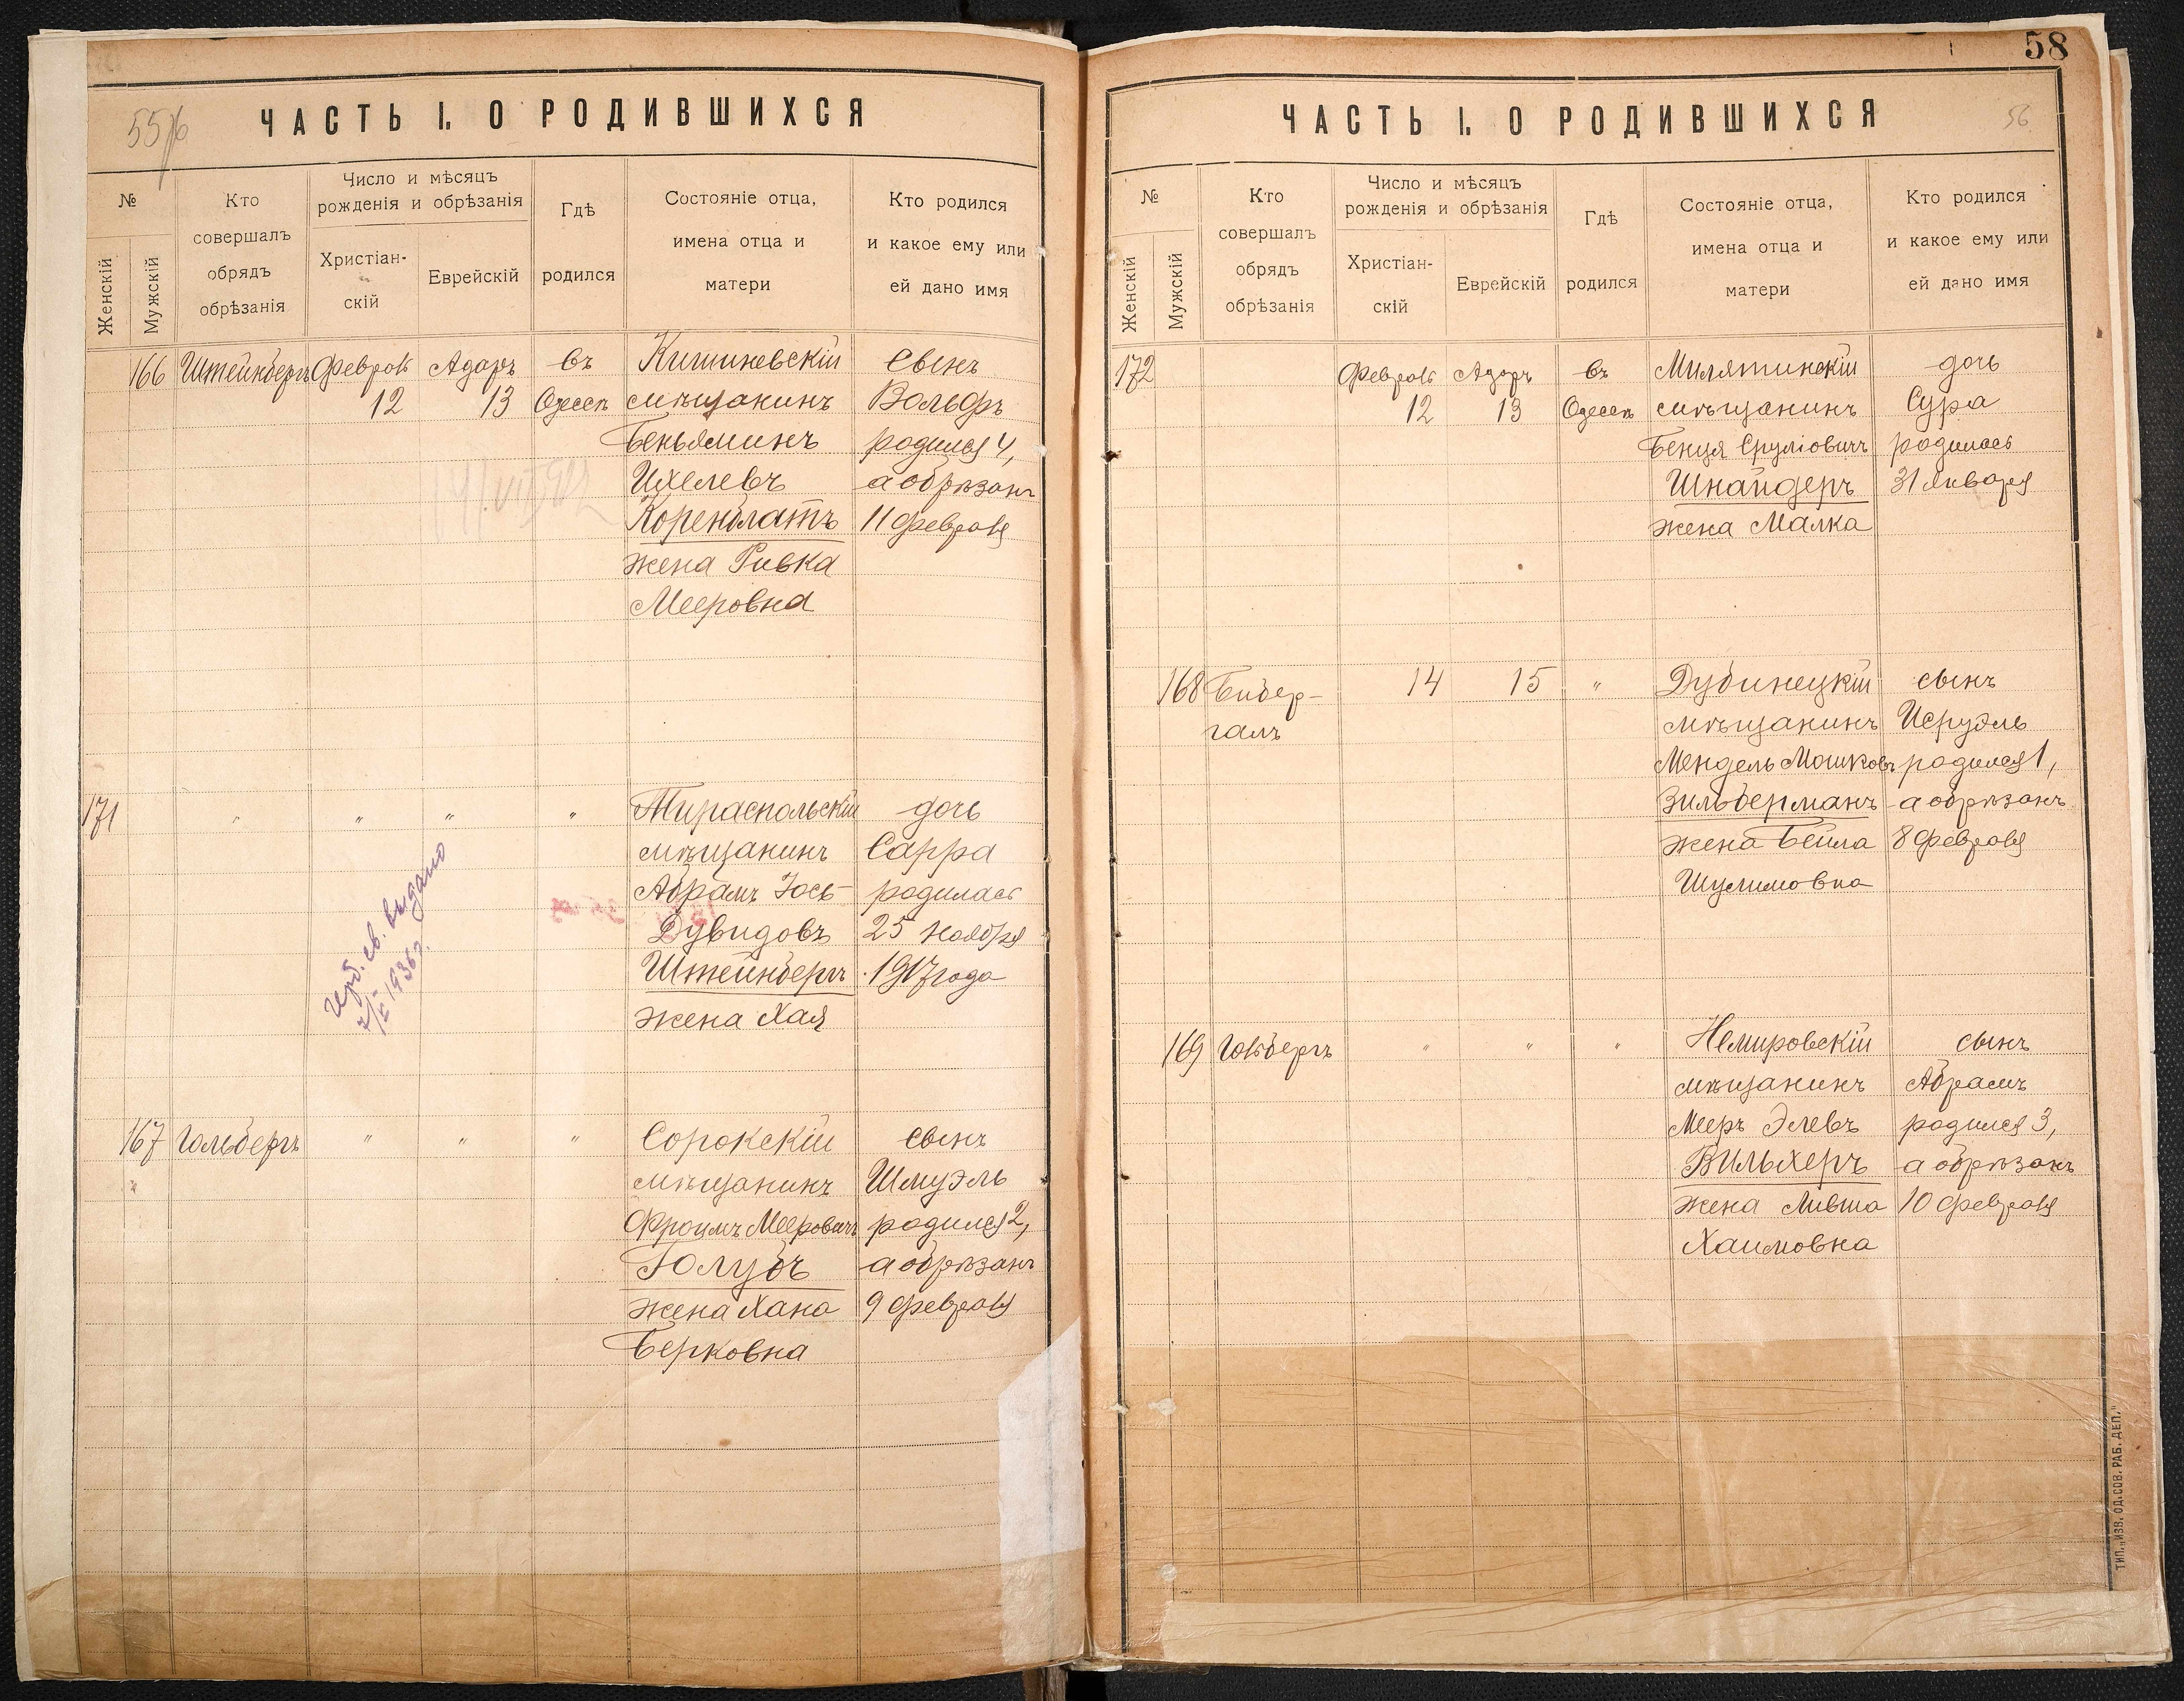 55/6
ЧАСТЬ I. О РОДИВШИХСЯ
№
Женскій
Мужскій
Кто
совершалъ
обрядъ
обрѣзанія
Число и мѣсяцъ
рожденія и обрѣзанія
Христіан-
скій
Еврейскій
Гдѣ
родился
Состояніе отца,
имена отца и
матери
Кто родился
и какое ему или
ей дано имя
166 Штейнбергъ Февраль Адаръ въ Кишиневскій сынъ
12 13 Одессѣ мѣщанинъ Вольфъ
Беньяминъ родился 4,
Ихелевъ а обрѣзанъ
Коренблатъ 11 февраля
жена Ривка
Мееровна
171 " " " " Тираспольскій дочь
мѣщанинъ Сарра
Абрамъ Іось- родилась
Дувидовъ 25 ноября
Штейнбергъ 1917 года
жена Хая
св. выдано
1936 г.
167 Гольбергъ " " " Сорокскій сынъ
мѣщанинъ Шмуэль
Фроимъ Мееровичъ родился 2,
Голубъ а обрѣзанъ
жена Хана 9 февраля
Берковна
58
56
ЧАСТЬ I. О РОДИВШИХСЯ
№
Женскій
Мужскій
Кто
совершалъ
обрядъ
обрѣзанія
Число и мѣсяцъ
рожденія и обрѣзанія
Христіан-
скій
Еврейскій
Гдѣ
родился
Состояніе отца,
имена отца и
матери
Кто родился
и какое ему или
ей дано имя
172 Февраль Адаръ въ Милятинскій дочь
12 13 Одессѣ мѣщанинъ Сура
Бенця Сруліовичъ родилась
Шнайдеръ 31 января
жена Малка
168 Бибер- 14 15 " Дубинецкій сынъ
галъ мѣщанинъ Исруэль
Мендель Мошковъ родился 1,
Зильберманъ а обрѣзанъ
жена Бейла 8 февраля
Шулимовна
169 Гольбергъ " " " Немировскій сынъ
мѣщанинъ Абрамъ
Мееръ Элевъ родился 3,
Вильхеръ а обрѣзанъ
жена Ливша 10 февраля
Хаимовна
ТИП. „ИЗВ. ОД. СОВ. РАБ. ДЕП."